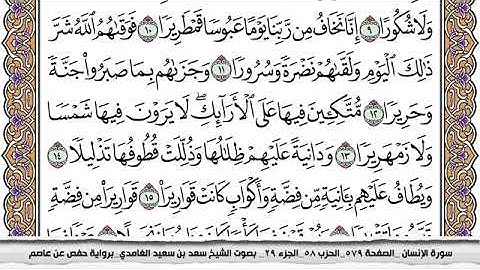 وَلَا شُكُورًا ٩ إِنَّا نَخَافُ مِن رَّبِّنَا يَوْمًا عَبُوسًا قَمْطَرِيرًا ١٠ فَوَقَىٰهُمُ ٱللَّهُ شَرَّ
ذَٰلِكَ ٱلْيَوْمِ وَلَقَّىٰهُمْ نَضْرَةً وَسُرُورًا ١١ وَجَزَىٰهُم بِمَا صَبَرُوا۟ جَنَّةً
وَحَرِيرًا ١٢ مُّتَّكِـِٔينَ فِيهَا عَلَى ٱلْأَرَآئِكِ ۖ لَا يَرَوْنَ فِيهَا شَمْسًا
وَلَا زَمْهَرِيرًا ١٣ وَدَانِيَةً عَلَيْهِمْ ظِلَٰلُهَا وَذُلِّلَتْ قُطُوفُهَا تَذْلِيلًا ١٤
وَيُطَافُ عَلَيْهِم بِـَٔانِيَةٍ مِّن فِضَّةٍ وَأَكْوَابٍ كَانَتْ قَوَارِيرَا۠ ١٥ قَوَارِيرَا۟ مِن فِضَّةٍ
سورة الإنسان _الصفحة ٥٧٩_الحزب ٥٨_الجزء ٢٩_ بصوت الشيخ سعد بن سعيد الغامدي_برواية حفص عن عاصم